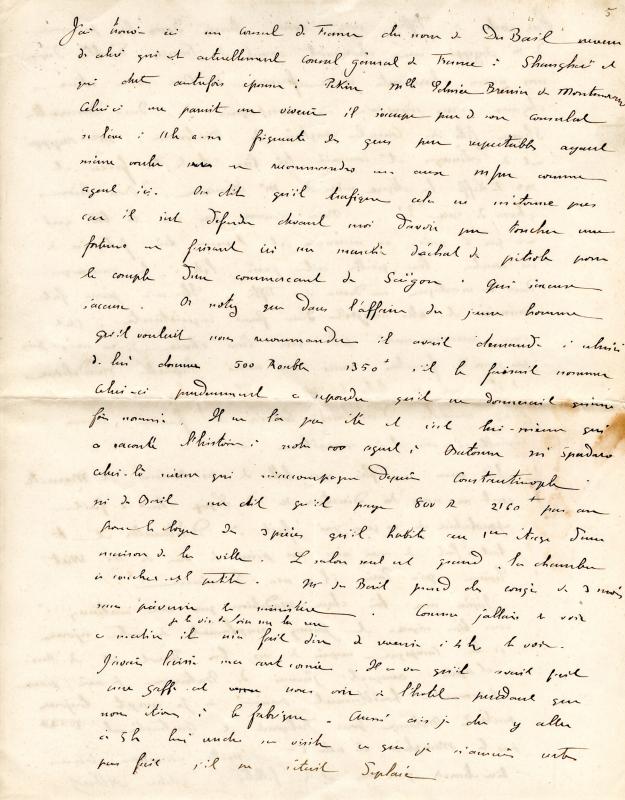 5
J'ai trouvé ici un consul de France du nom de Du Bail neveu
de celui qui est actuellement consul général de France à Shanghaï et
qui doit autrefois épouser à Pékin Mlle Brenier de Montmorand
Celui-ci me parait un viveur il s'occupe peu de son consulat
se lève à 11h a.m. fréquente des gens peu respectables ayant
même voulu me recommander un comme
agent ici. On dit qu'il trafique cela ne m'étonne pas
car il s'est défendu devant moi d'avoir pu toucher une
fortune en faisant ici un marché d'achat de pétrole pour
le compte d'un commerçant de Saïgon. Qui s'excuse
s'accuse. Or notez que dans l'affaire du jeune homme
qu'il voulait nous recommander il avait demandé à celui-ci
de lui donner 500 Roubles 1350 s'il le faisait nommer
celui-ci prudemment a répondu qu'il ne donnerait qu'une
fois nommé. Il ne l'a pas été et c'est lui-même qui
a raconté l'histoire à notre agent à Batoum Mr Spadaro
celui-là même qui m'accompagne depuis Constantinople
Mr du Bail me dit qu'il paye 800 R 2160 par an
pour le loyer de 3 pièces qu'il habite au 1er étage d'une
maison de la ville. Le salon seul est grand, la chambre
à coucher est petite. Mr du Bail prend des congés de 3 mois
sans prévenir le ministère. Comme j'allais le voir
ce matin il m'a fait dire de revenir à 4h le voir.
J'avais laissé ma carte cornée. Il a vu qu'il avait fait
une gaffe et nous voir à l'hôtel pendant que
nous étions à la fabrique. Aussi ai-je dû y aller
à 5h lui rendre sa visite ce que je n'aurais certes
pas fait s'il ne s'était déplacé